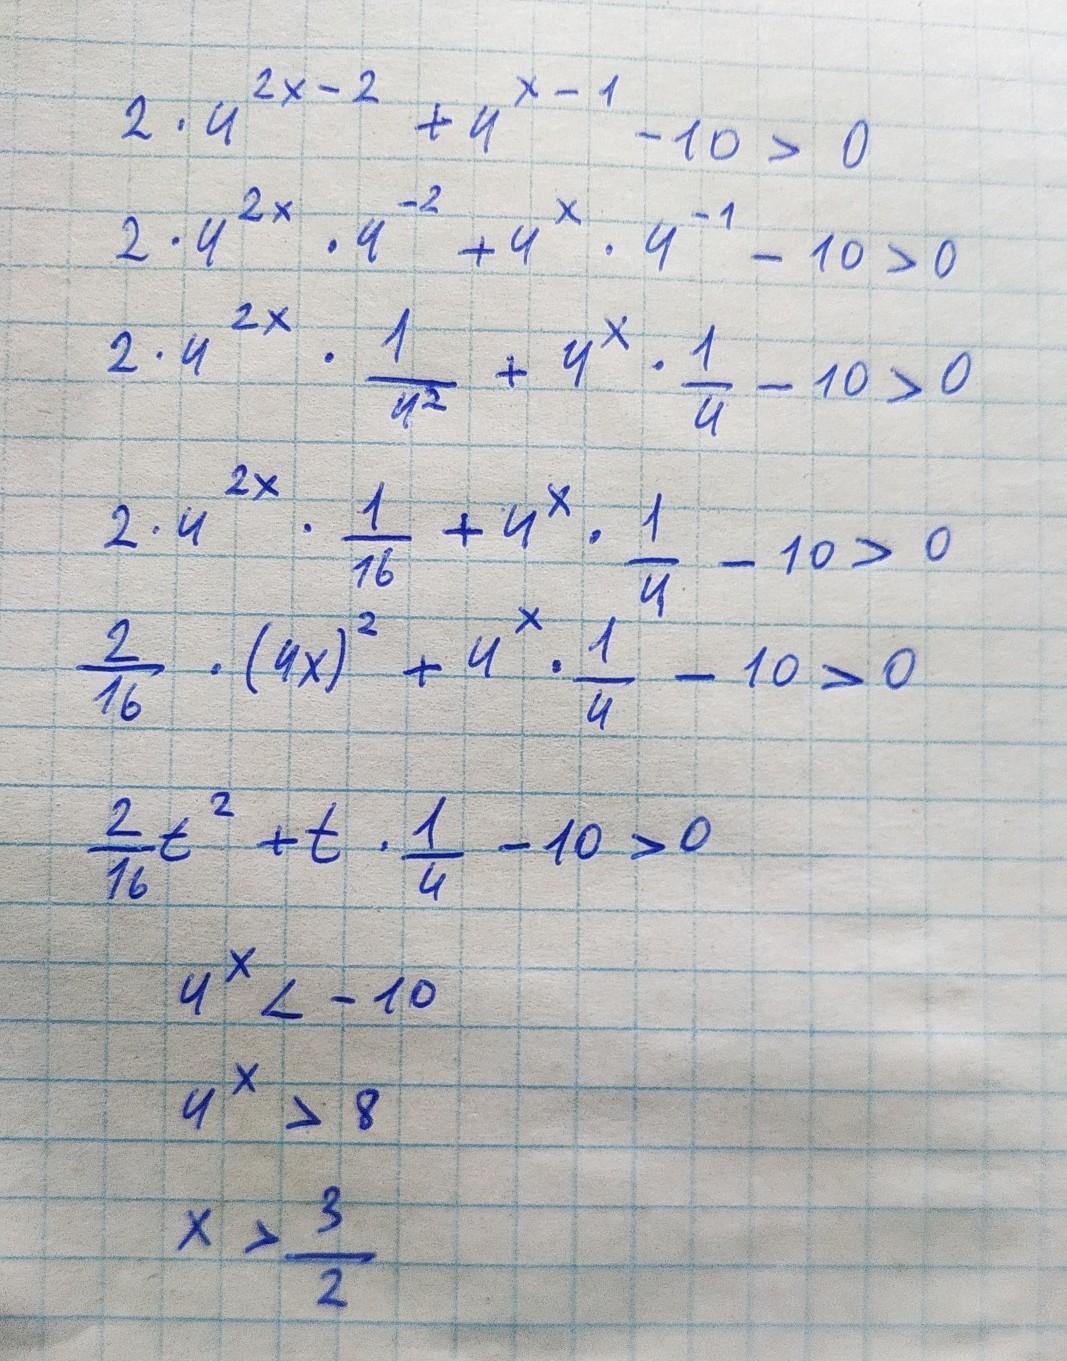 2 · 4^{2x-2} + 4^{x-1} - 10 > 0
2 · 4^{2x} · 4^{-2} + 4^x · 4^{-1} - 10 > 0
2 · 4^{2x} · \frac{1}{4^2} + 4^x · \frac{1}{4} - 10 > 0
2 · 4^{2x} · \frac{1}{16} + 4^x · \frac{1}{4} - 10 > 0
\frac{2}{16} · (4x)^2 + 4^x · \frac{1}{4} - 10 > 0
\frac{2}{16} t^2 + t · \frac{1}{4} - 10 > 0
4^x < -10
4^x > 8
x > \frac{3}{2}